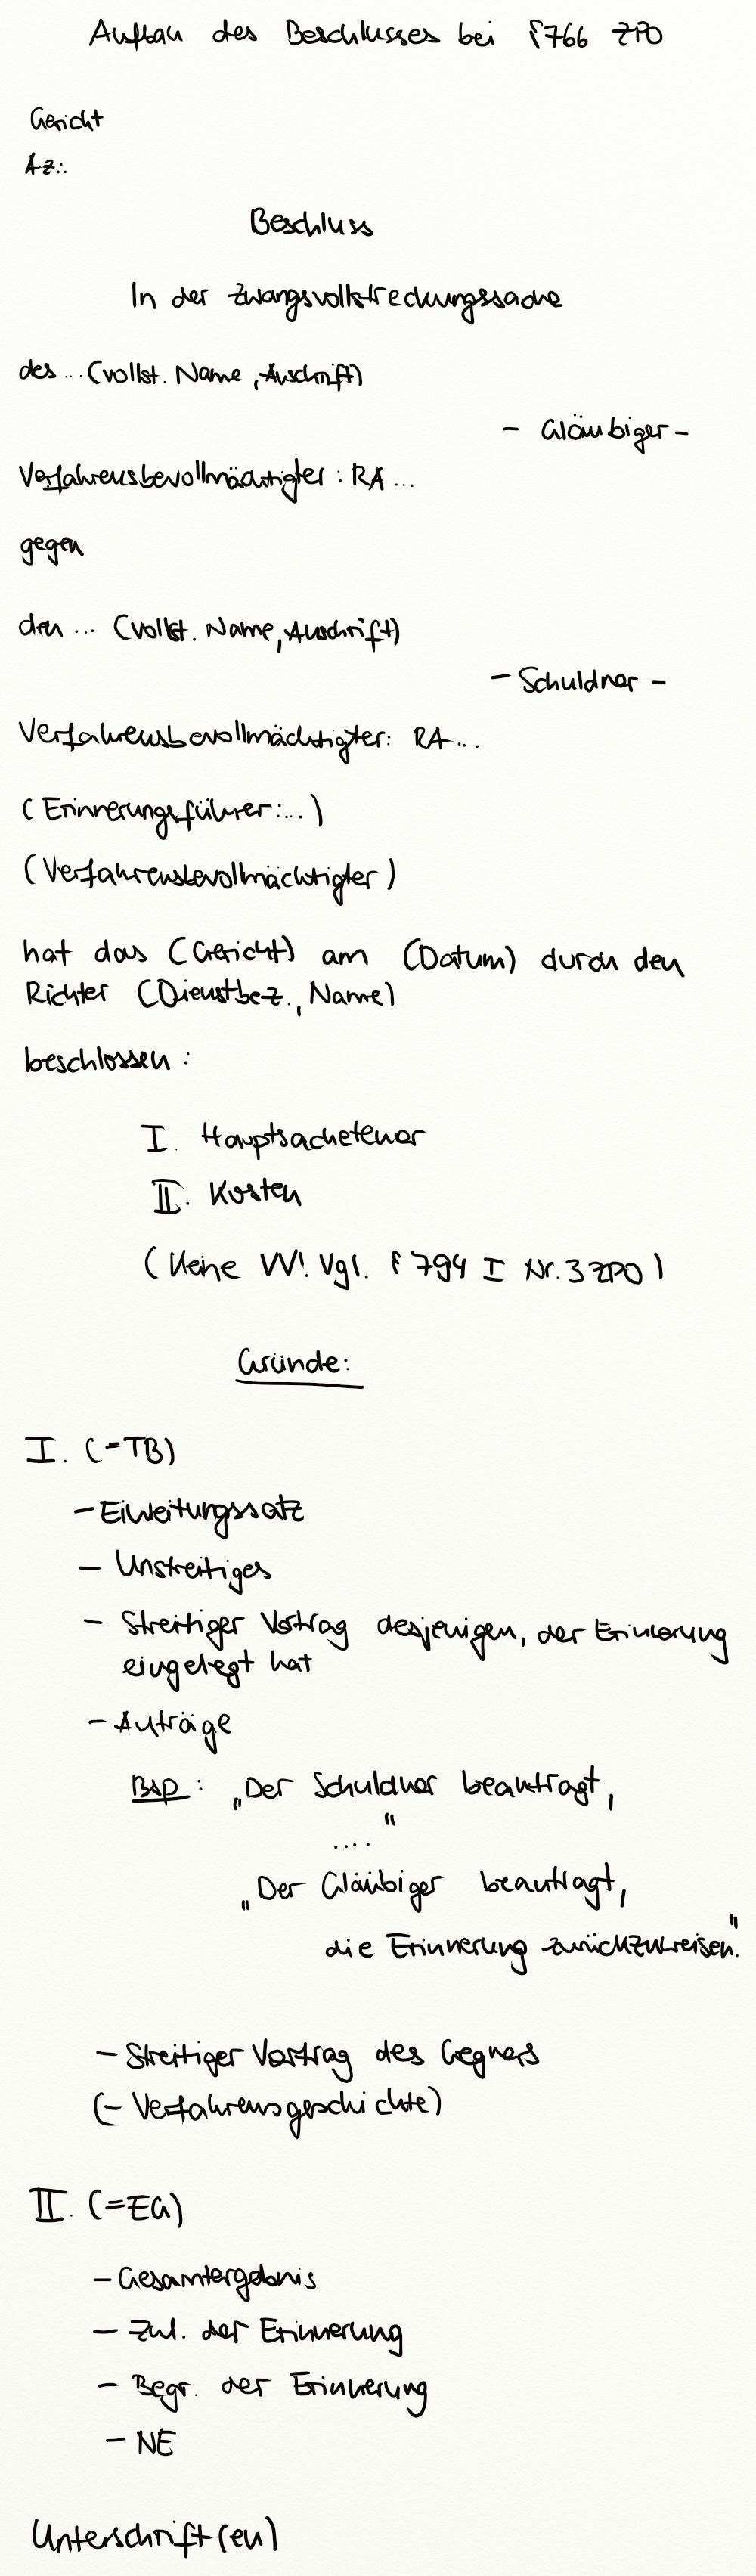 Aufbau des Beschlusses bei § 766 ZPO
Gericht
Az.:
Beschluss
In der Zwangsvollstreckungssache
des ... (vollst. Name, Anschrift)
- Gläubiger -
Verfahrensbevollmächtigter: RA ...
gegen
den ... (vollst. Name, Anschrift)
- Schuldner -
Verfahrensbevollmächtigter: RA ...
(Erinnerungsführer: ...)
(Verfahrensbevollmächtigter)
hat das (Gericht) am (Datum) durch den
Richter (Dienstbez., Name)
beschlossen:
I. Hauptsachetenor
II. Kosten
(Keine VV! Vgl. § 794 I Nr. 3 ZPO)
Gründe:
I. (=TB)
- Einleitungssatz
- Unstreitiges
- Streitiger Vortrag desjenigen, der Erinnerung
eingelegt hat
- Anträge
Bsp: „Der Schuldner beantragt,
...."
„Der Gläubiger beantragt,
die Erinnerung zurückzuweisen."
- Streitiger Vortrag des Gegners
(- Verfahrensgeschichte)
II. (=EG)
- Gesamtergebnis
- Zul. der Erinnerung
- Begr. der Erinnerung
- NE
Unterschrift(en)